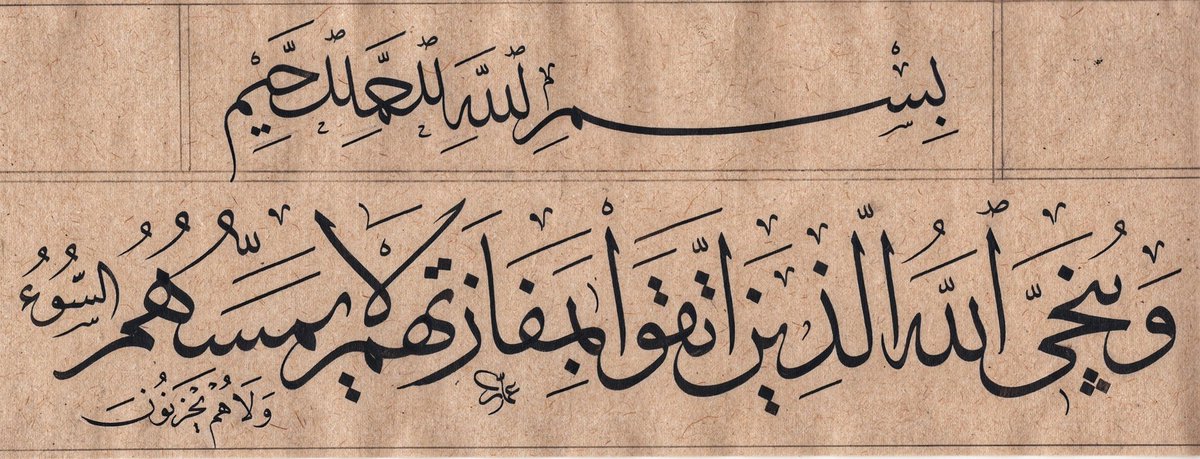 بِسْمِ ٱللَّهِ ٱلرَّحْمَٰنِ ٱلرَّحِيمِ
وَيُنَجِّى ٱللَّهُ ٱلَّذِينَ ٱتَّقَوْا۟ بِمَفَازَتِهِمْ لَا يَمَسُّهُمُ السُّوٓءُ
وَلَا هُمْ يَحْزَنُونَ